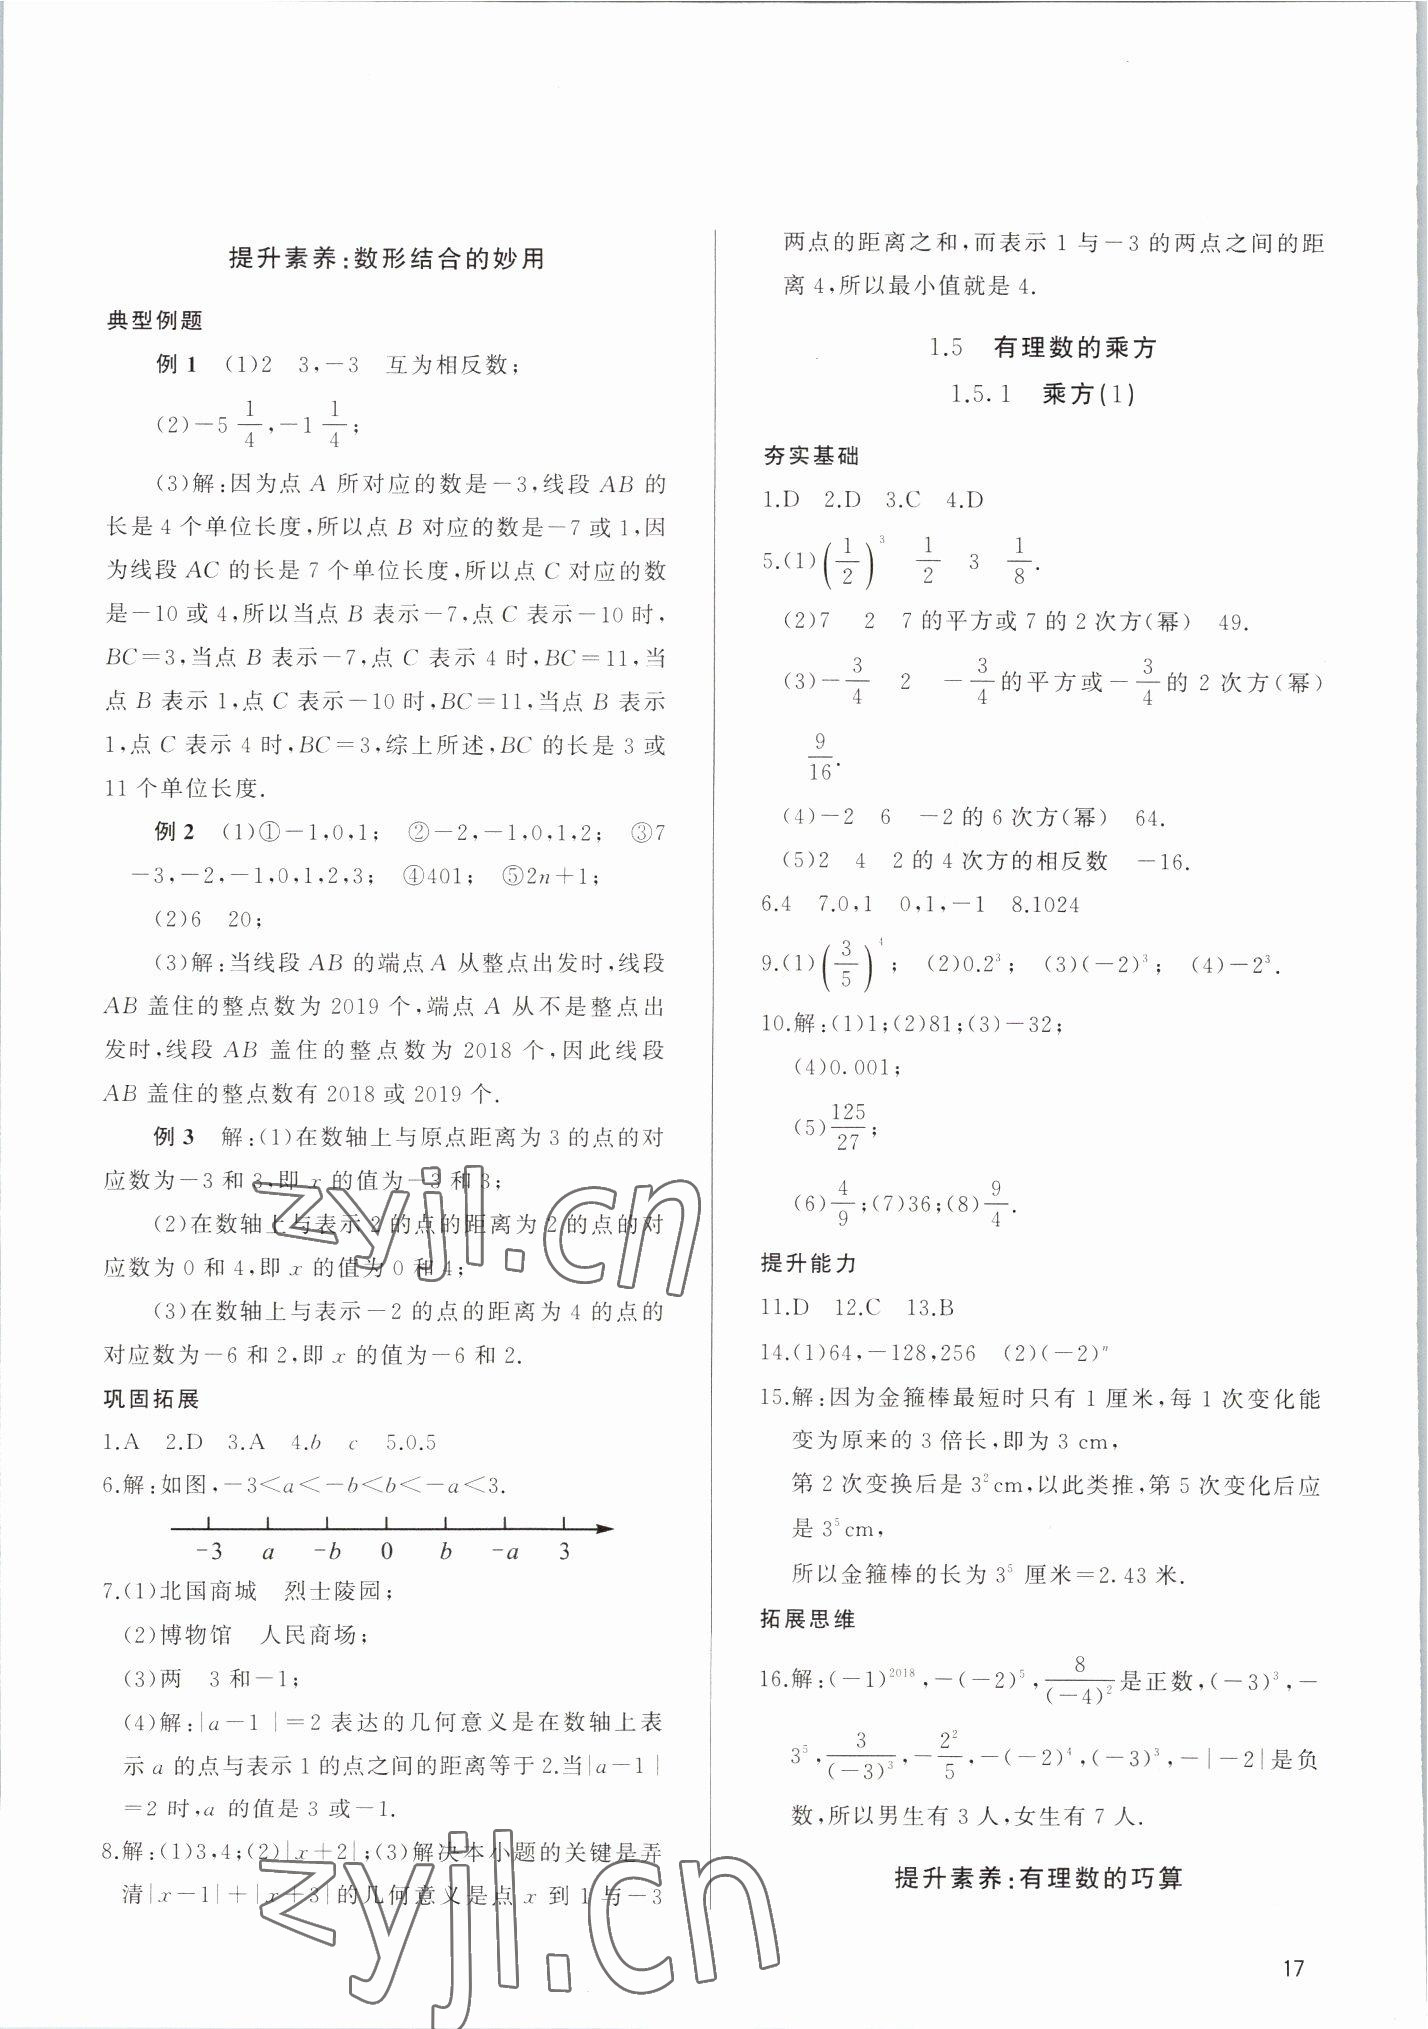 提升素养:数形结合的妙用
典型例题
例1 (1)2 3,-3 互为相反数;
(2)-5 1/4,-1 1/4;
(3)解:因为点 A 所对应的数是-3,线段 AB 的
长是 4 个单位长度,所以点 B 对应的数是-7 或 1,因
为线段 AC 的长是 7 个单位长度,所以点 C 对应的数
是-10 或 4,所以当点 B 表示-7,点 C 表示-10 时,
BC=3,当点 B 表示-7,点 C 表示 4 时,BC=11,当
点 B 表示 1,点 C 表示-10 时,BC=11,当点 B 表示
1,点 C 表示 4 时,BC=3,综上所述,BC 的长是 3 或
11 个单位长度.
例2 (1)①-1,0,1; ②-2,-1,0,1,2; ③7
-3,-2,-1,0,1,2,3; ④401; ⑤2n+1;
(2)6 20;
(3)解:当线段 AB 的端点 A 从整点出发时,线段
AB 盖住的整点数为 2019 个,端点 A 从不是整点出
发时,线段 AB 盖住的整点数为 2018 个,因此线段
AB 盖住的整点数有 2018 或 2019 个.
例3 解:(1)在数轴上与原点距离为 3 的点的对
应数为-3 和 3,即 x 的值为-3 和 3;
(2)在数轴上与表示 2 的点的距离为 2 的点的对
应数为 0 和 4,即 x 的值为 0 和 4;
(3)在数轴上与表示-2 的点的距离为 4 的点的
对应数为-6 和 2,即 x 的值为-6 和 2.
巩固拓展
1.A 2.D 3.A 4.b c 5.0.5
6.解:如图,-3<a<-b<b<-a<3.
-3 a -b 0 b -a 3
7.(1)北国商城 烈士陵园;
(2)博物馆 人民商场;
(3)两 3 和-1;
(4)解:|a-1|=2 表达的几何意义是在数轴上表
示 a 的点与表示 1 的点之间的距离等于 2.当|a-1|
=2 时,a 的值是 3 或-1.
8.解:(1)3,4;(2)|x+2|;(3)解决本小题的关键是弄
清|x-1|+|x+3|的几何意义是点 x 到 1 与-3
两点的距离之和,而表示 1 与-3 的两点之间的距
离 4,所以最小值就是 4.
1.5 有理数的乘方
1.5.1 乘方(1)
夯实基础
1.D 2.D 3.C 4.D
5.(1)(1/2)³ 1/2 3 1/8.
(2)7 2 7 的平方或 7 的 2 次方(幂) 49.
(3)-3/4 2 -3/4 的平方或-3/4 的 2 次方(幂)
9/16.
(4)-2 6 -2 的 6 次方(幂) 64.
(5)2 4 2 的 4 次方的相反数 -16.
6.4 7.0,1 0,1,-1 8.1024
9.(1)(3/5)⁴; (2)0.2³; (3)(-2)³; (4)-2³.
10.解:(1)1;(2)81;(3)-32;
(4)0.001;
(5)125/27;
(6)4/9;(7)36;(8)9/4.
提升能力
11.D 12.C 13.B
14.(1)64,-128,256 (2)(-2)ⁿ
15.解:因为金箍棒最短时只有 1 厘米,每 1 次变化能
变为原来的 3 倍长,即为 3 cm,
第 2 次变换后是 3²cm,以此类推,第 5 次变化后应
是 3⁵cm,
所以金箍棒的长为 3⁵ 厘米=2.43 米.
拓展思维
16.解:(-1)²⁰¹⁸,-(-2)⁵,8/(-4)²是正数,(-3)³,-
3⁵,3/(-3)³,-2²/5,-(-2)⁴,(-3)³,-|-2|是负
数,所以男生有 3 人,女生有 7 人.
提升素养:有理数的巧算
17
zyjl.cn
zyjl.cn